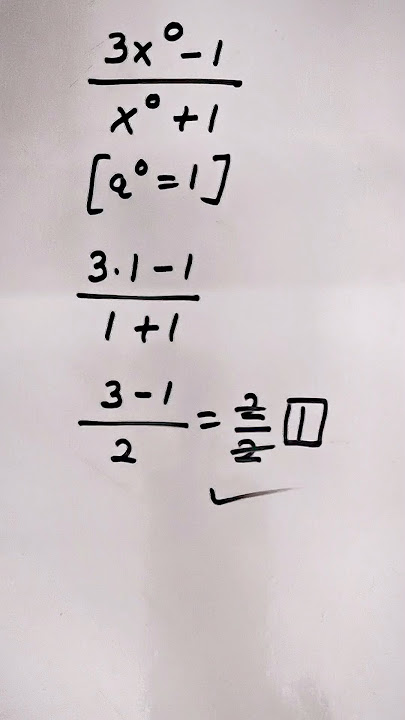 3x⁰-1
x⁰+1
[a⁰=1]
3.1-1
1+1
3-1
2
= 2
2
1